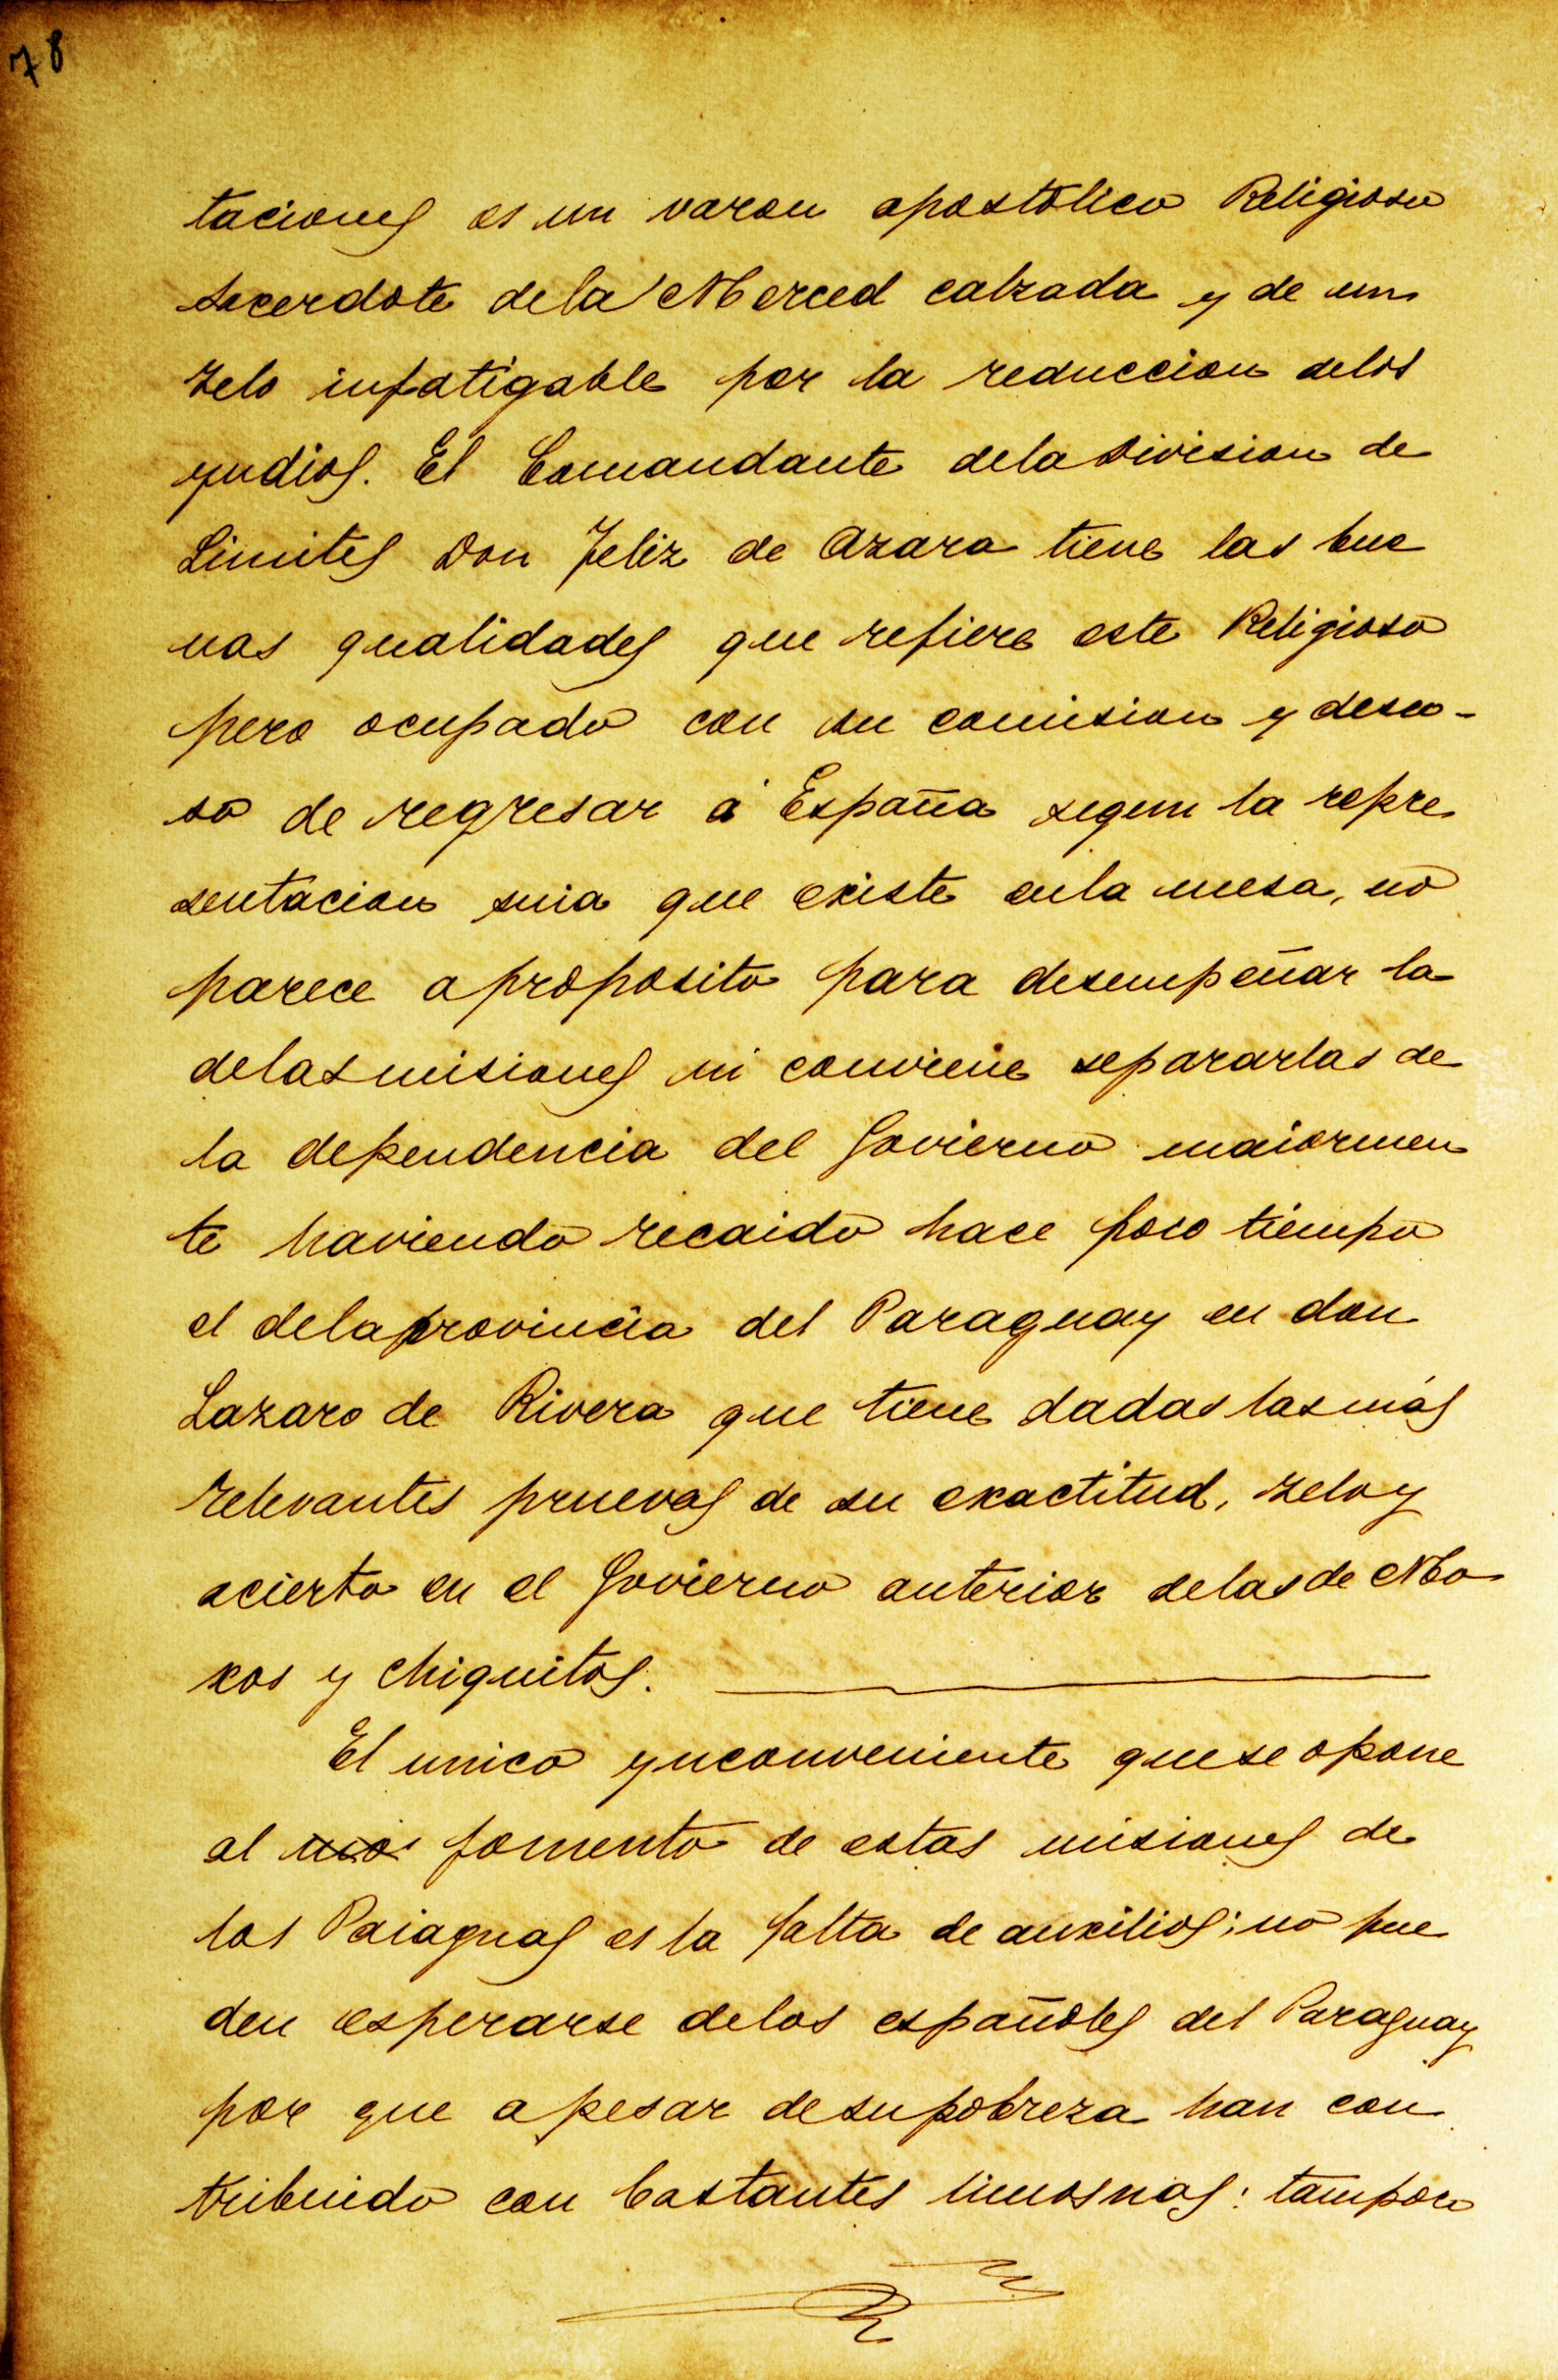 78
taciones es un varon apostólico Religioso
sacerdote dela Merced calzada y de un
zelo infatigable por la reduccion delos
yndios. El Comandante dela Division de
Limites Don Feliz de Azara tiene las bue
nas qualidades que refiere este Religioso
pero ocupado con su comision y deseo-
so de regresar á España segun la repre
sentacion suia que existe enla mesa, no
parece aproposito para desempeñar la
delas misiones ni conviene separarlas de
la dependencia del Govierno maiormen
te haviendo recaido hace poco tiempo
el dela provincia del Paraguay en don
Lazaro de Rivera que tiene dadas las más
relevantes pruevas de su exactitud, zelo y
acierto en el Govierno anterior delas de Mo
xos y Chiquitos.
El unico ynconveniente que se opone
al fomento de estas misiones de
los Paiaguas es la falta de auxilios; no pue
den esperarse delos españoles del Paraguay
por que apesar de su pobreza han con
tribuido con bastantes limosnas: tampoco